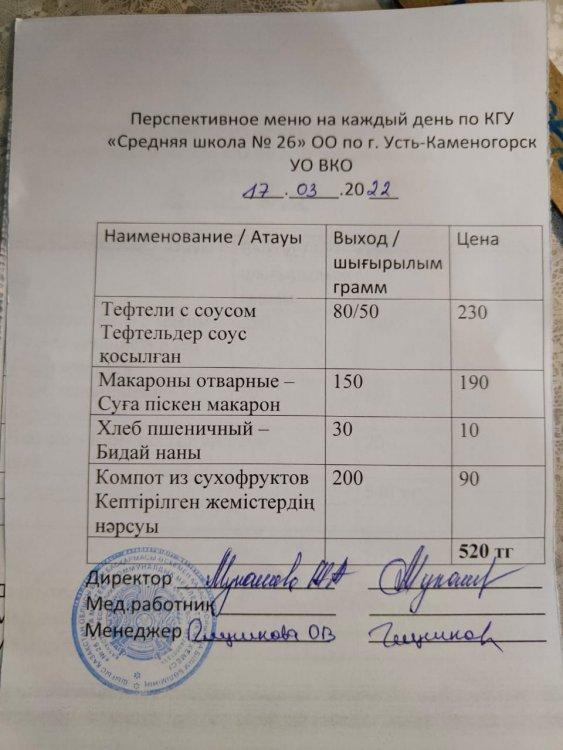 Перспективное меню на каждый день по КГУ
«Средняя школа № 26» ОО по г. Усть-Каменогорск
УО ВКО
17.03.2022
Наименование / Атауы
Выход / шығырылым грамм
Цена
Тефтели с соусом
Тефтельдер соус
қосылған
80/50
230
Макароны отварные –
Суға піскен макарон
150
190
Хлеб пшеничный –
Бидай наны
30
10
Компот из сухофруктов
Кептірілген жемістердің
нәрсуы
200
90
520 тг
Директор
Мед.работник
Менеджер